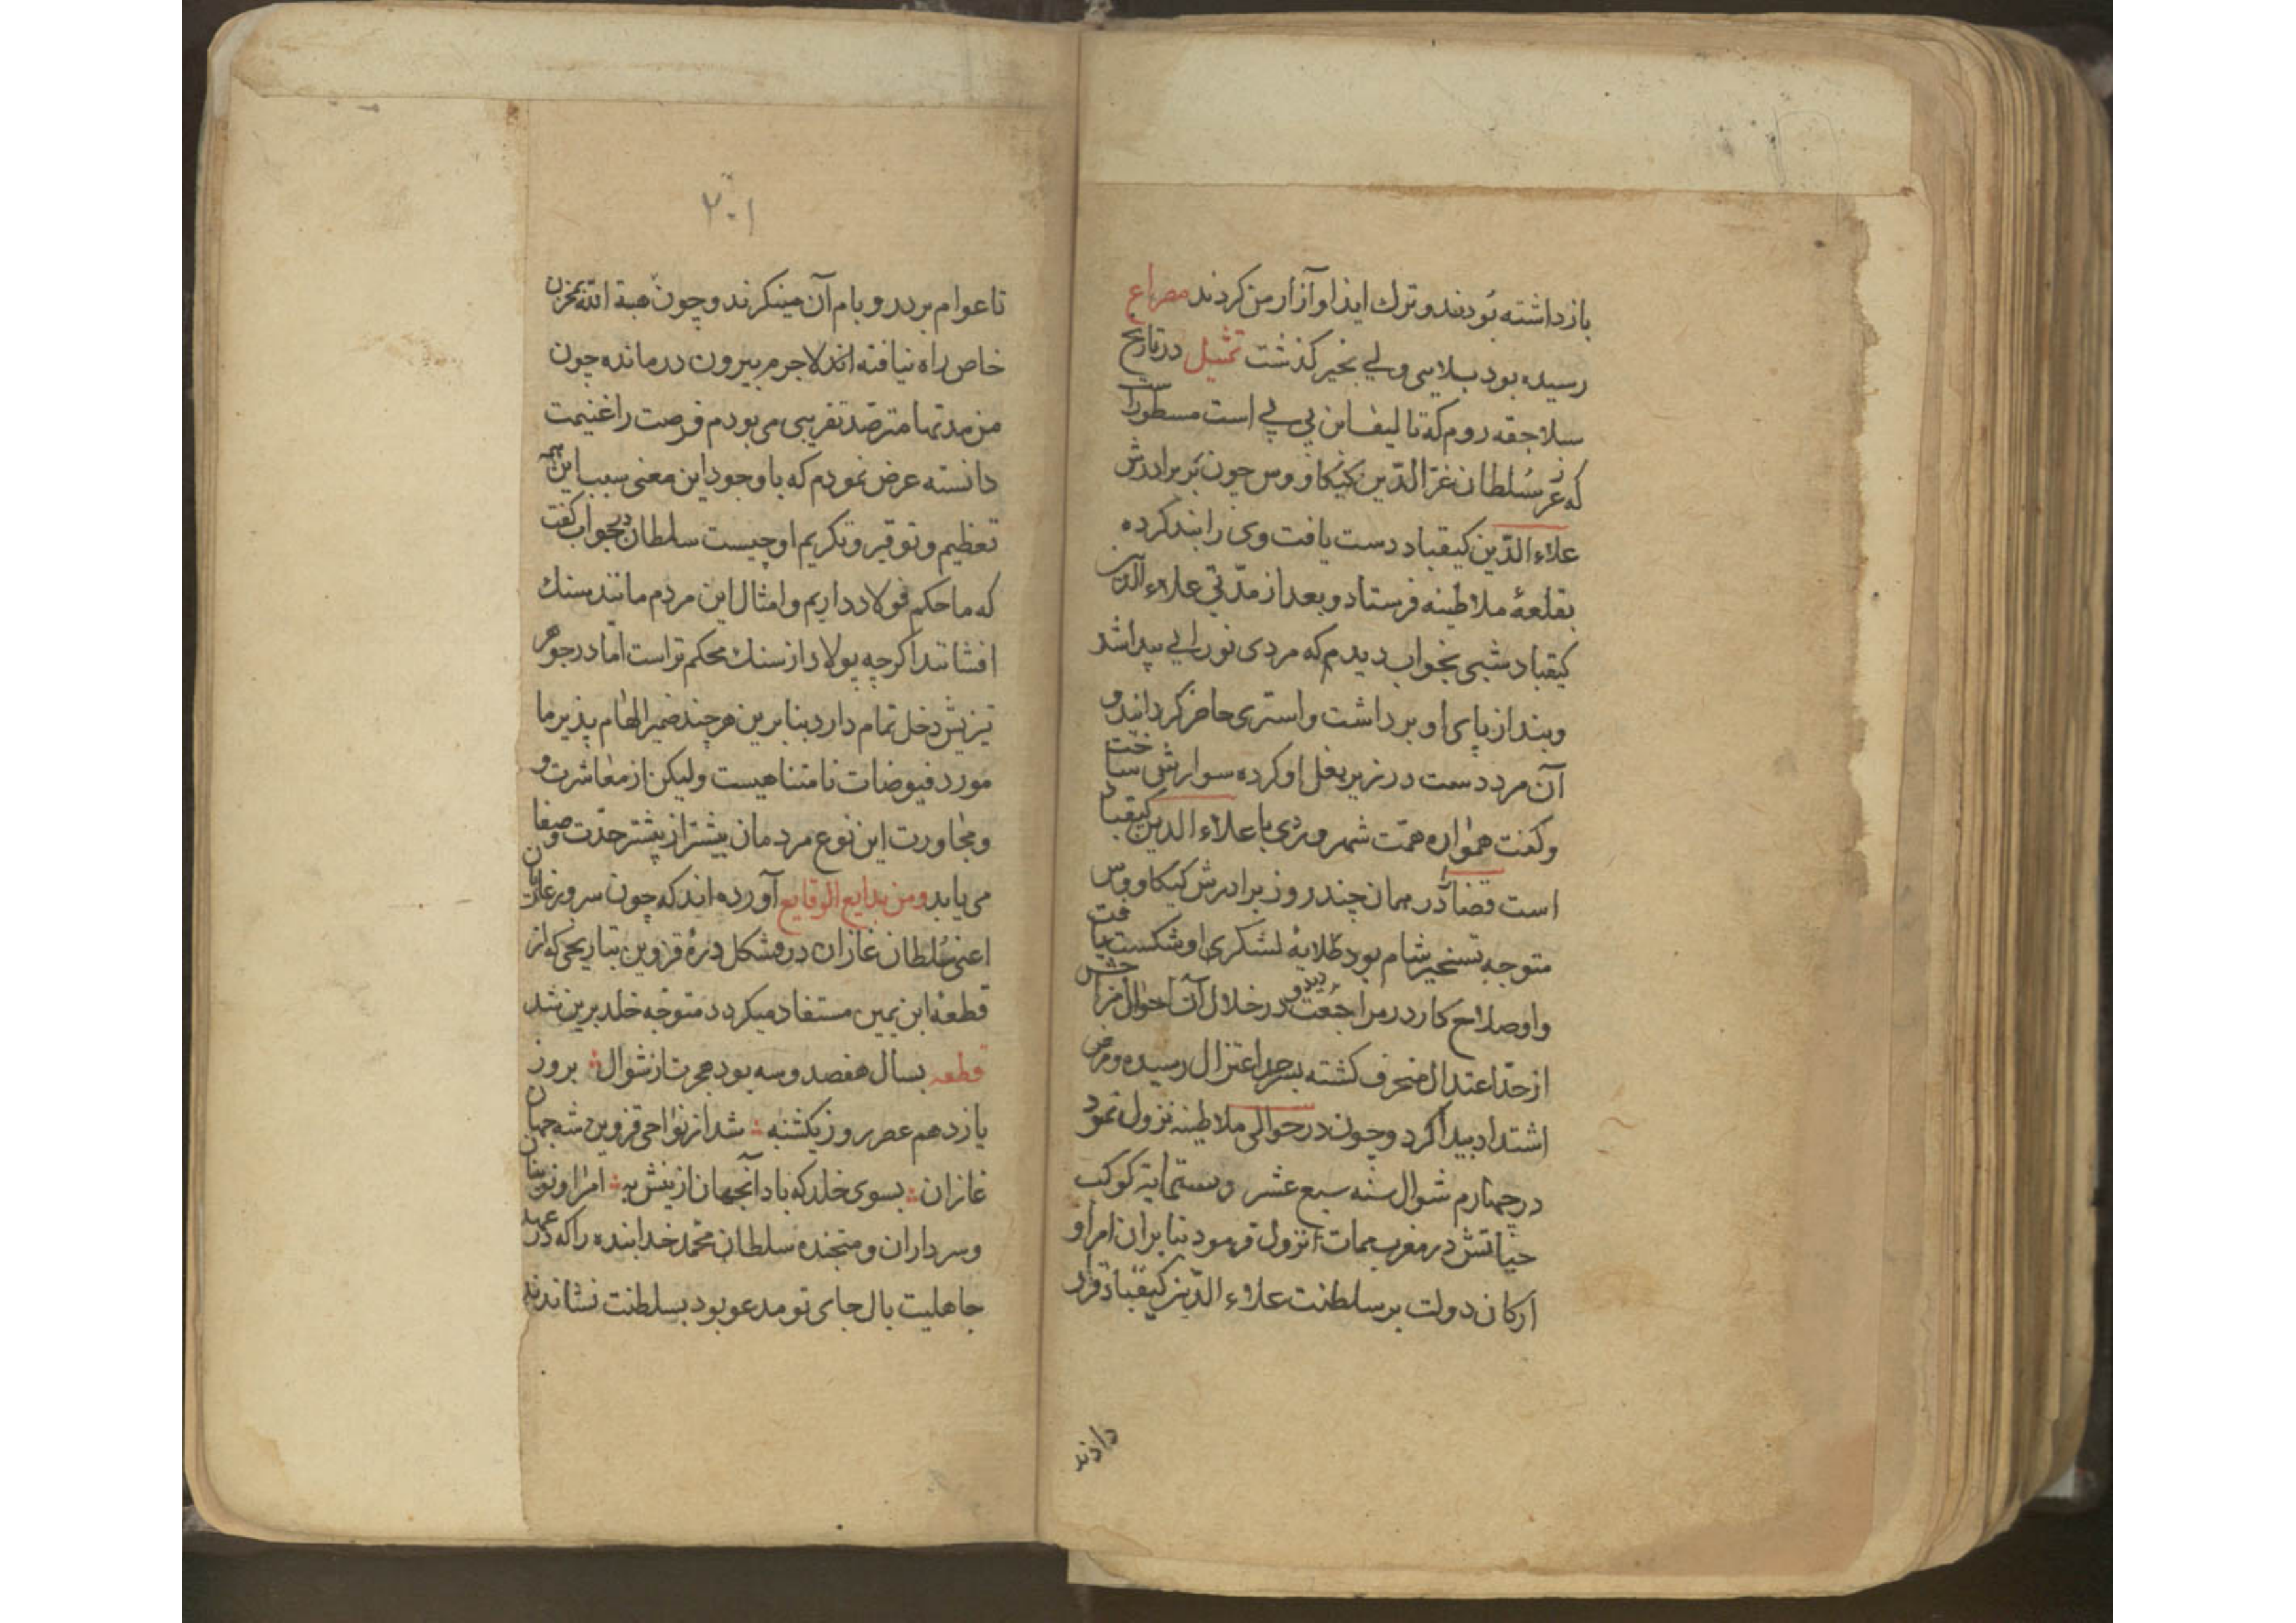 بازداشته بودند و ترك ایذا و آزار من کردند مصراع
رسیده بود بلایی ولی بخیر گذشت تمثیل در تاریخ
سلاجقه روم که تالیف ابن بی بی است مسطور است
که عز سلطان عز الدین کیکاووس چون بر برادرش
علاء الدین کیقباد دست یافت وی را بند کرده
بقلعۀ ملاطینه فرستاد و بعد از مدتی علاء الدین
کیقباد شبی بخواب دیدم که مردی نورانی پیدا شد
و بند از پای او برداشت و استری حاضر کردانید و
آن مرد دست در زیر بغل او کرده سوارش ساخت
و کفت همواره همت شهروردی با علاء الدین کیقباد
است قضا را در همان چند روز برادرش کیکاووس
متوجه تسخیر شام بود طلایۀ لشکری او شکست یافت
و او صلاح کار در مراجعت دید و در خلال آن احوال مزاجش
از حد اعتدال منحرف کشته بسرحد اعتزال رسیده و مرض
اشتداد پیدا کرد و چون در حوالی ملاطینه نزول نمود
در چهارم شوال سنه سبع عشر و ستمایة کوکب
حیاتش در مغرب ممات نزول فرمود بنابران امرا و
ارکان دولت بر سلطنت علاء الدین کیقباد قرار
دادند
۲۰۱
تا عوام بر در و بام آن مینکرند و چون هبة الله بمخزن
خاص راه نیافته اند لاجرم بیرون درمانده چون
من مدتها مترصد تقریبی می بودم فرصت را غنیمت
دانسته عرض نمودم که با وجود این معنی سبب این همه
تعظیم و توقیر و تکریم او چیست سلطان در جواب کفت
که ما حکم فولاد داریم و امثال این مردم مانند سنك
افشانند اکرچه پولاد از سنك محکم تر است اما در جوهر
تیزیش دخل تمام دارد بنا برین هرچند ضمیر الهام پذیر ما
مورد فیوضات نامتناهیست ولیکن از معاشرت و
و مجاورت این نوع مردمان بیشتر از پیشتر حدت و صفا
می یابد ومن بدایع الوقایع آورده اند که چون سرور غازیان
اعنی سلطان غازان در مشکل درۀ قزوین بتاریخی که از
قطعۀ ابن یمین مستفاد میکردد متوجه خلد برین شد
قطعه بسال هفصد و سه بود هجرت از شوال بروز
یازدهم عصر روز یکشنبه شد از نواحی قزوین شه جهان
غازان بسوی خلد که باد آنجهان ازینش به امرا و نوینان
و سرداران و متجنده سلطان محمد خدابنده را که در عهد
جاهلیت بال جای تو مدعو بود بسلطنت نشاندند